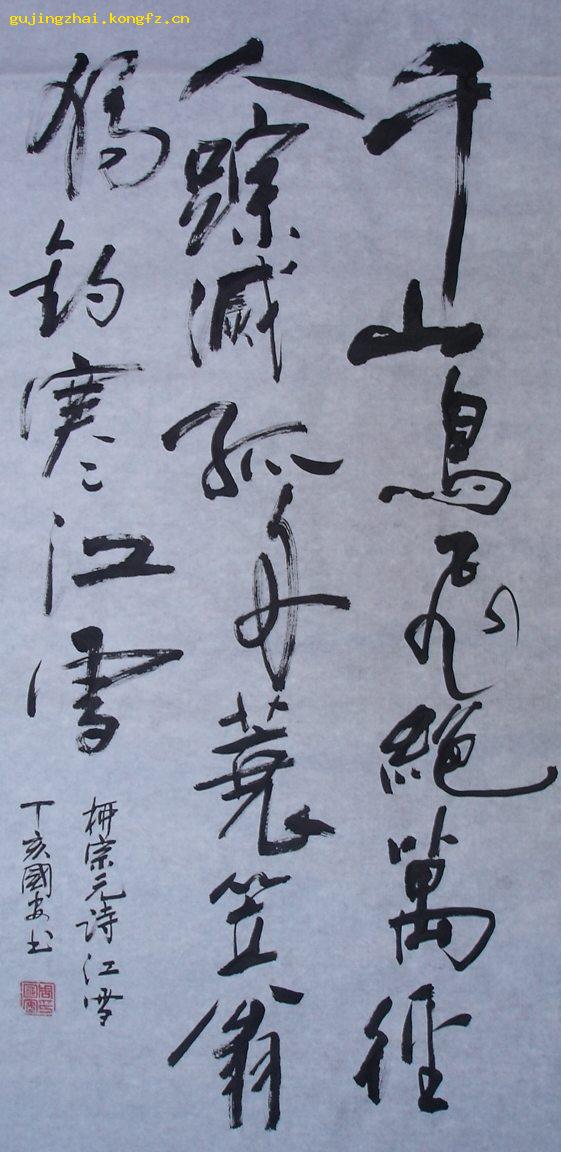 gujingzhai.kongfz.cn
千山鳥飛絕萬徑
人踪滅孤舟蓑笠翁
獨釣寒江雪
柳宗元诗江雪
丁亥國安书